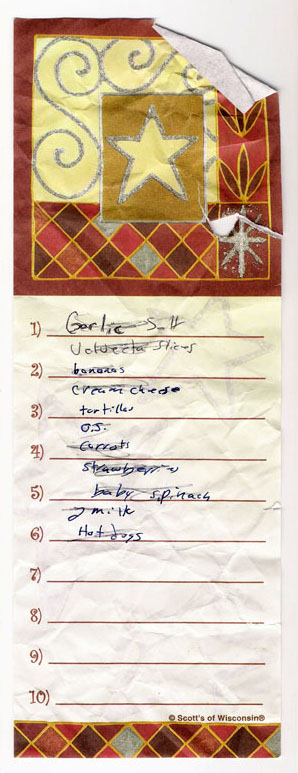 1) Garlic Salt
Velveeta slices
2) bananas
cream cheese
3) tortillas
O.J.
4) carrots
strawberries
5) baby spinach
2 milk
6) Hot dogs
7)
8)
9)
10)
© Scott's of Wisconsin®